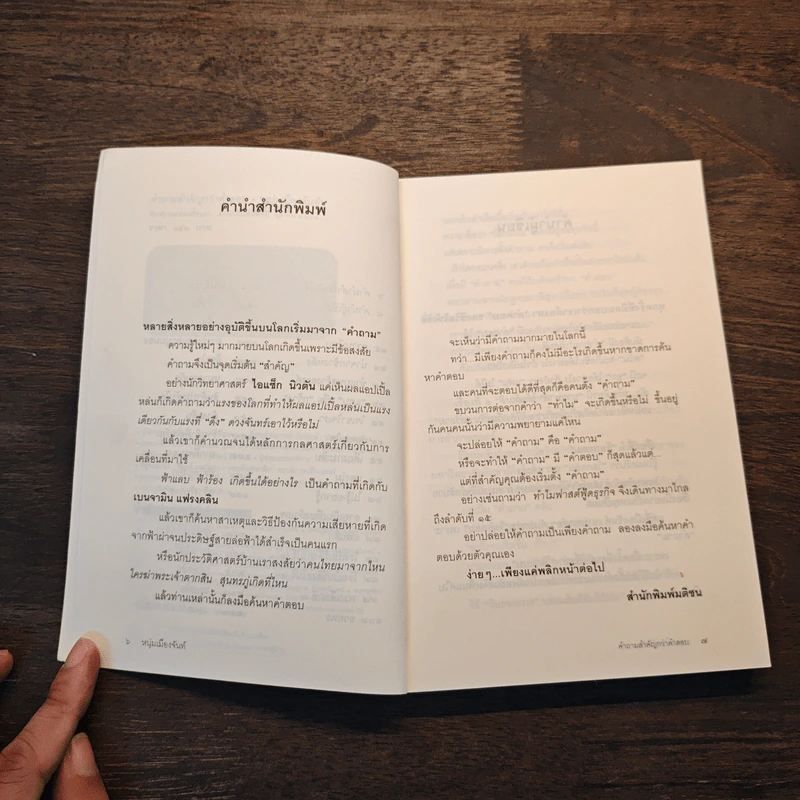 คำนำสำนักพิมพ์
หลายสิ่งหลายอย่างอุบัติขึ้นบนโลกเริ่มมาจาก “คำถาม”
ความรู้ใหม่ๆ มากมายบนโลกเกิดขึ้นเพราะมีข้อสงสัย
คำถามจึงเป็นจุดเริ่มต้น “สำคัญ”
อย่างนักวิทยาศาสตร์ ไอแซ็ก นิวตัน แค่เห็นผลแอปเปิ้ล
หล่นก็เกิดคำถามว่าแรงของโลกที่ทำให้ผลแอปเปิ้ลหล่นเป็นแรง
เดียวกันกับแรงที่ “ดึง” ดวงจันทร์เอาไว้หรือไม่
แล้วเขาก็คำนวณจนได้หลักการกลศาสตร์เกี่ยวกับการ
เคลื่อนที่มาใช้
ฟ้าแลบ ฟ้าร้อง เกิดขึ้นได้อย่างไร เป็นคำถามที่เกิดกับ
เบนจามิน แฟรงคลิน
แล้วเขาก็ค้นหาสาเหตุและวิธีป้องกันความเสียหายที่เกิด
จากฟ้าผ่าจนประดิษฐ์สายล่อฟ้าได้สำเร็จเป็นคนแรก
หรือนักประวัติศาสตร์บ้านเราสงสัยว่าคนไทยมาจากไหน
ใครฆ่าพระเจ้าตากสิน สุนทรภู่เกิดที่ไหน
แล้วท่านเหล่านั้นก็ลงมือค้นหาคำตอบ
๖ หนุ่มเมืองจันท์
จะเห็นว่ามีคำถามมากมายในโลกนี้
ทว่า...มีเพียงคำถามก็คงไม่มีอะไรเกิดขึ้นหากขาดการค้น
หาคำตอบ
และคนที่จะตอบได้ดีที่สุดก็คือคนตั้ง “คำถาม”
ขบวนการต่อจากคำว่า “ทำไม” จะเกิดขึ้นหรือไม่ ขึ้นอยู่
กับคนคนนั้นว่ามีความพยายามแค่ไหน
จะปล่อยให้ “คำถาม” คือ “คำถาม”
หรือจะทำให้ “คำถาม” มี “คำตอบ” ก็สุดแล้วแต่...
แต่ที่สำคัญคุณต้องเริ่มตั้ง “คำถาม”
อย่างเช่นถามว่า ทำไมฟาสต์ฟู้ดธุรกิจ จึงเดินทางมาไกล
ถึงลำดับที่ ๑๕
อย่าปล่อยให้คำถามเป็นเพียงคำถาม ลองลงมือค้นหาคำ
ตอบด้วยตัวคุณเอง
ง่ายๆ...เพียงแค่พลิกหน้าต่อไป
สำนักพิมพ์มติชน
คำถามสำคัญกว่าคำตอบ ๗